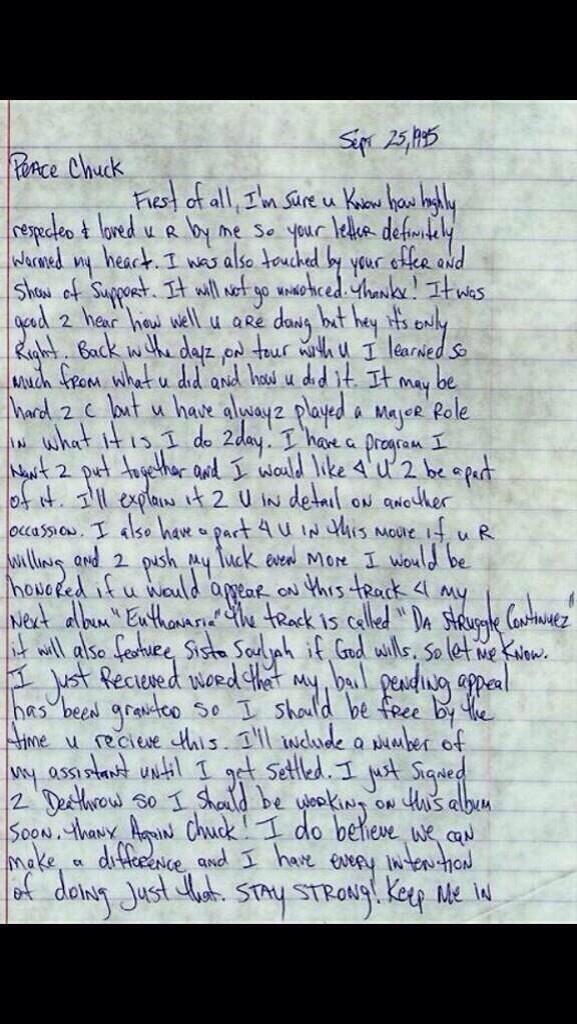 Sept 25, 1995
Peace Chuck
First of all, I'm sure u know how highly
respected & loved u R by me so your letter definitely
warmed my heart. I was also touched by your offer and
show of support. It will not go unnoticed. Thanks! It was
good 2 hear how well u are doing but hey it's only
Right. Back in the dayz, on tour with u I learned so
much from what u did and how u did it. It may be
hard 2 c but u have alwayz played a Major Role
in what it is I do 2day. I have a program I
want 2 put together and I would like 4 U 2 be apart
of it. I'll explain it 2 U in detail on another
occassion. I also have a part 4 U in this movie if u R
willing and 2 push my luck even more I would be
honored if u would appear on this track 4 my
Next album "Euthanasia" the track is called "Da Struggle Continuez"
it will also feature Sista Souljah if God wills. So let me know.
I just recieved word that my bail pending appeal
has been granted so I should be free by the
time u recieve this. I'll include a number of
my assistant until I get settled. I just signed
2 Deathrow so I should be working on this album
soon. Thanx Again Chuck! I do believe we can
make a difference and I have every intention
of doing just that. STAY STRONG! Keep me in